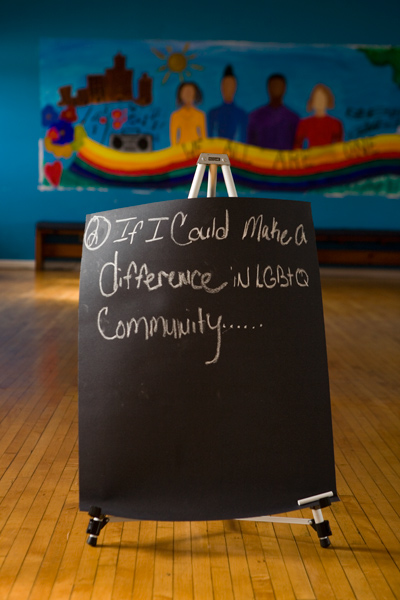 ② If I Could Make a
difference iN LGBtQ
Community......
WE ALL ARE ONE